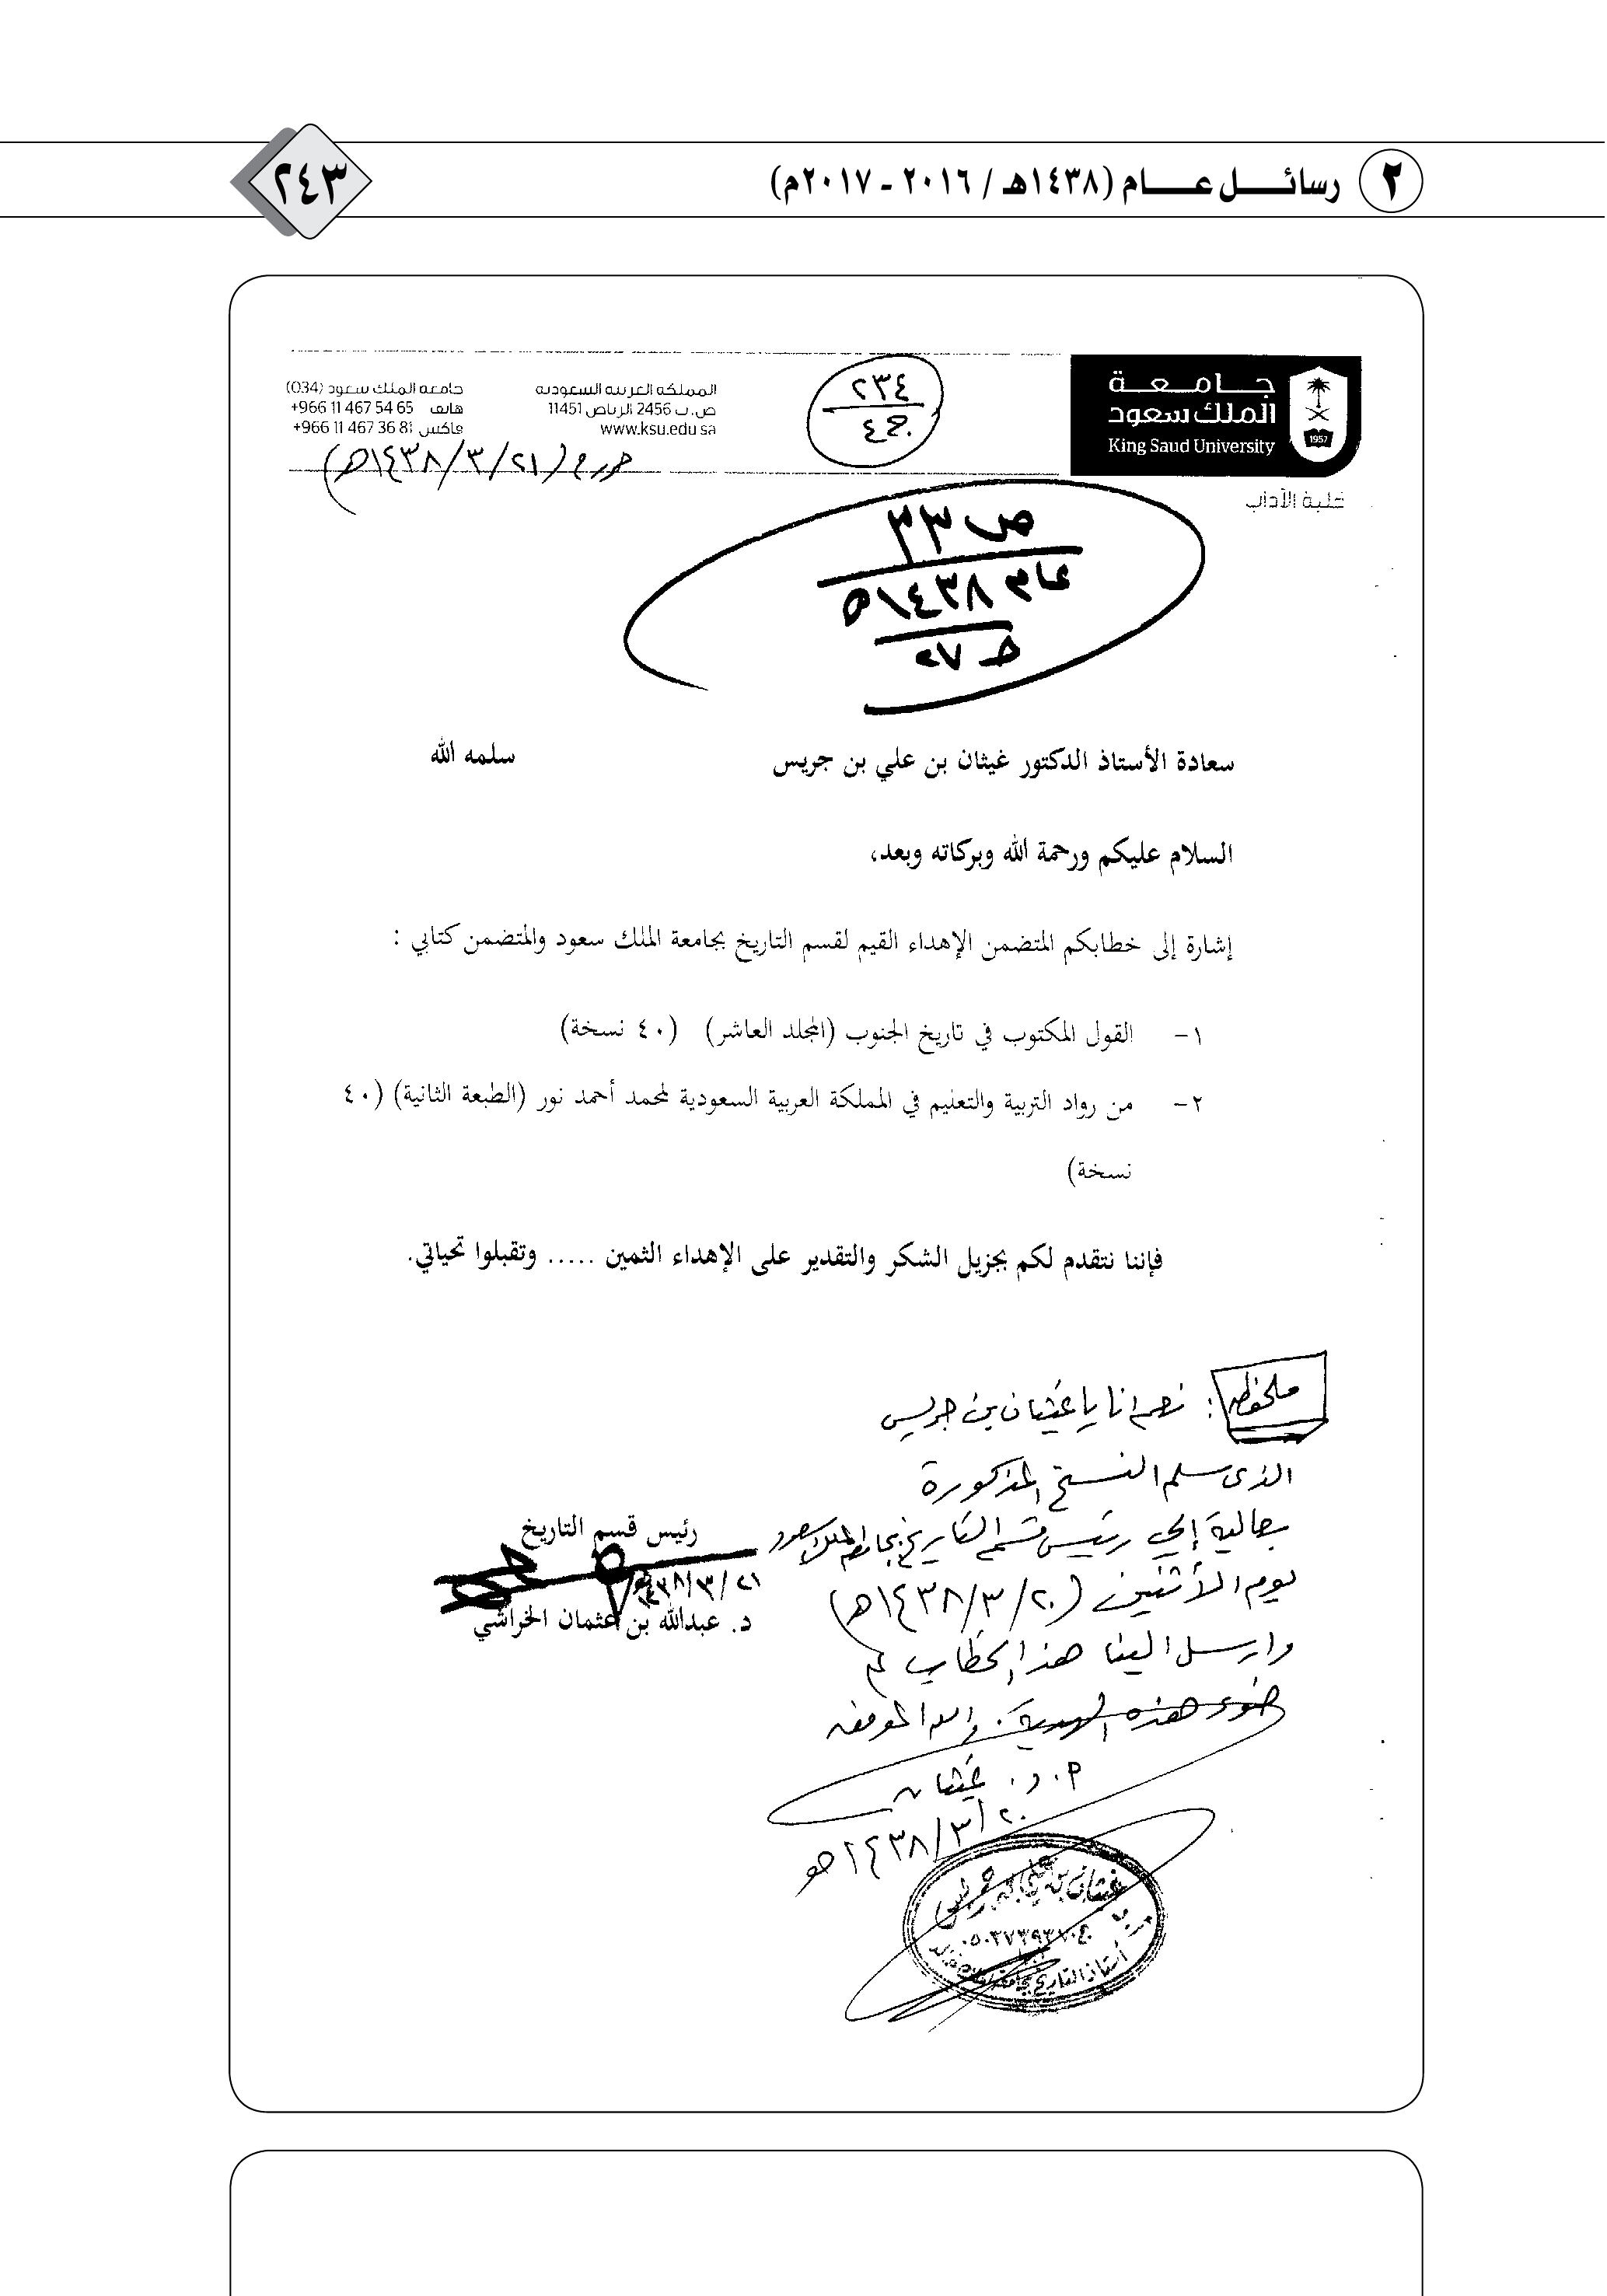 ٢ رسائـــل عـــام (١٤٣٨هـ / ٢٠١٦ - ٢٠١٧م)
٢٤٣
جـامـعـة
الملك سعود
King Saud University
1957
كلية الآداب
المملكة العربية السعودية
ص.ب 2456 الرياض 11451
www.ksu.edu.sa
جامعة الملك سعود (034)
هاتف +966 11 467 54 65
فاكس +966 11 467 36 81
٢٣٤
ج٤
(٢١/٣/١٤٣٨هـ)
ص ٣٣
عام ١٤٣٨هـ
ح ٧٢
سعادة الأستاذ الدكتور غيثان بن علي بن جريس سلمه الله
السلام عليكم ورحمة الله وبركاته وبعد،
إشارة إلى خطابكم المتضمن الإهداء القيم لقسم التاريخ بجامعة الملك سعود والمتضمن كتابي :
١- القول المكتوب في تاريخ الجنوب (المجلد العاشر) (٤٠ نسخة)
٢- من رواد التربية والتعليم في المملكة العربية السعودية لمحمد أحمد نور (الطبعة الثانية) (٤٠
نسخة)
فإننا نتقدم لكم بجزيل الشكر والتقدير على الإهداء الثمين ..... وتقبلوا تحياتي.
رئيس قسم التاريخ
٢١/٣/١٤٣٨هـ
د. عبدالله بن عثمان الخراشي
ملحوظة : نعم انا يا غيثان بن جريس
الذي سلم النسخ المذكورة
بعاليه إلى رئيس قسم التاريخ بجامعة الملك سعود
يوم الأثنين (٢٠/٣/١٤٣٨هـ)
وارسل الينا هذا الخطاب في
ضوء هذه الهدية. والله الموفق
أ. د. غيثان
٢٠/٣/١٤٣٨هـ
غيثان بن علي بن جريس
أستاذ التاريخ بجامعة الملك خالد